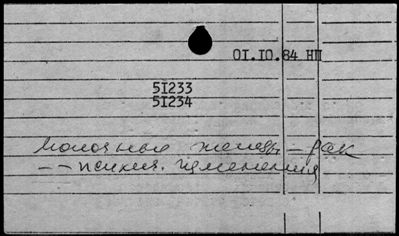 01.10.84 НП
51233
51234
Молочные железы – рак
– – психич. изменения